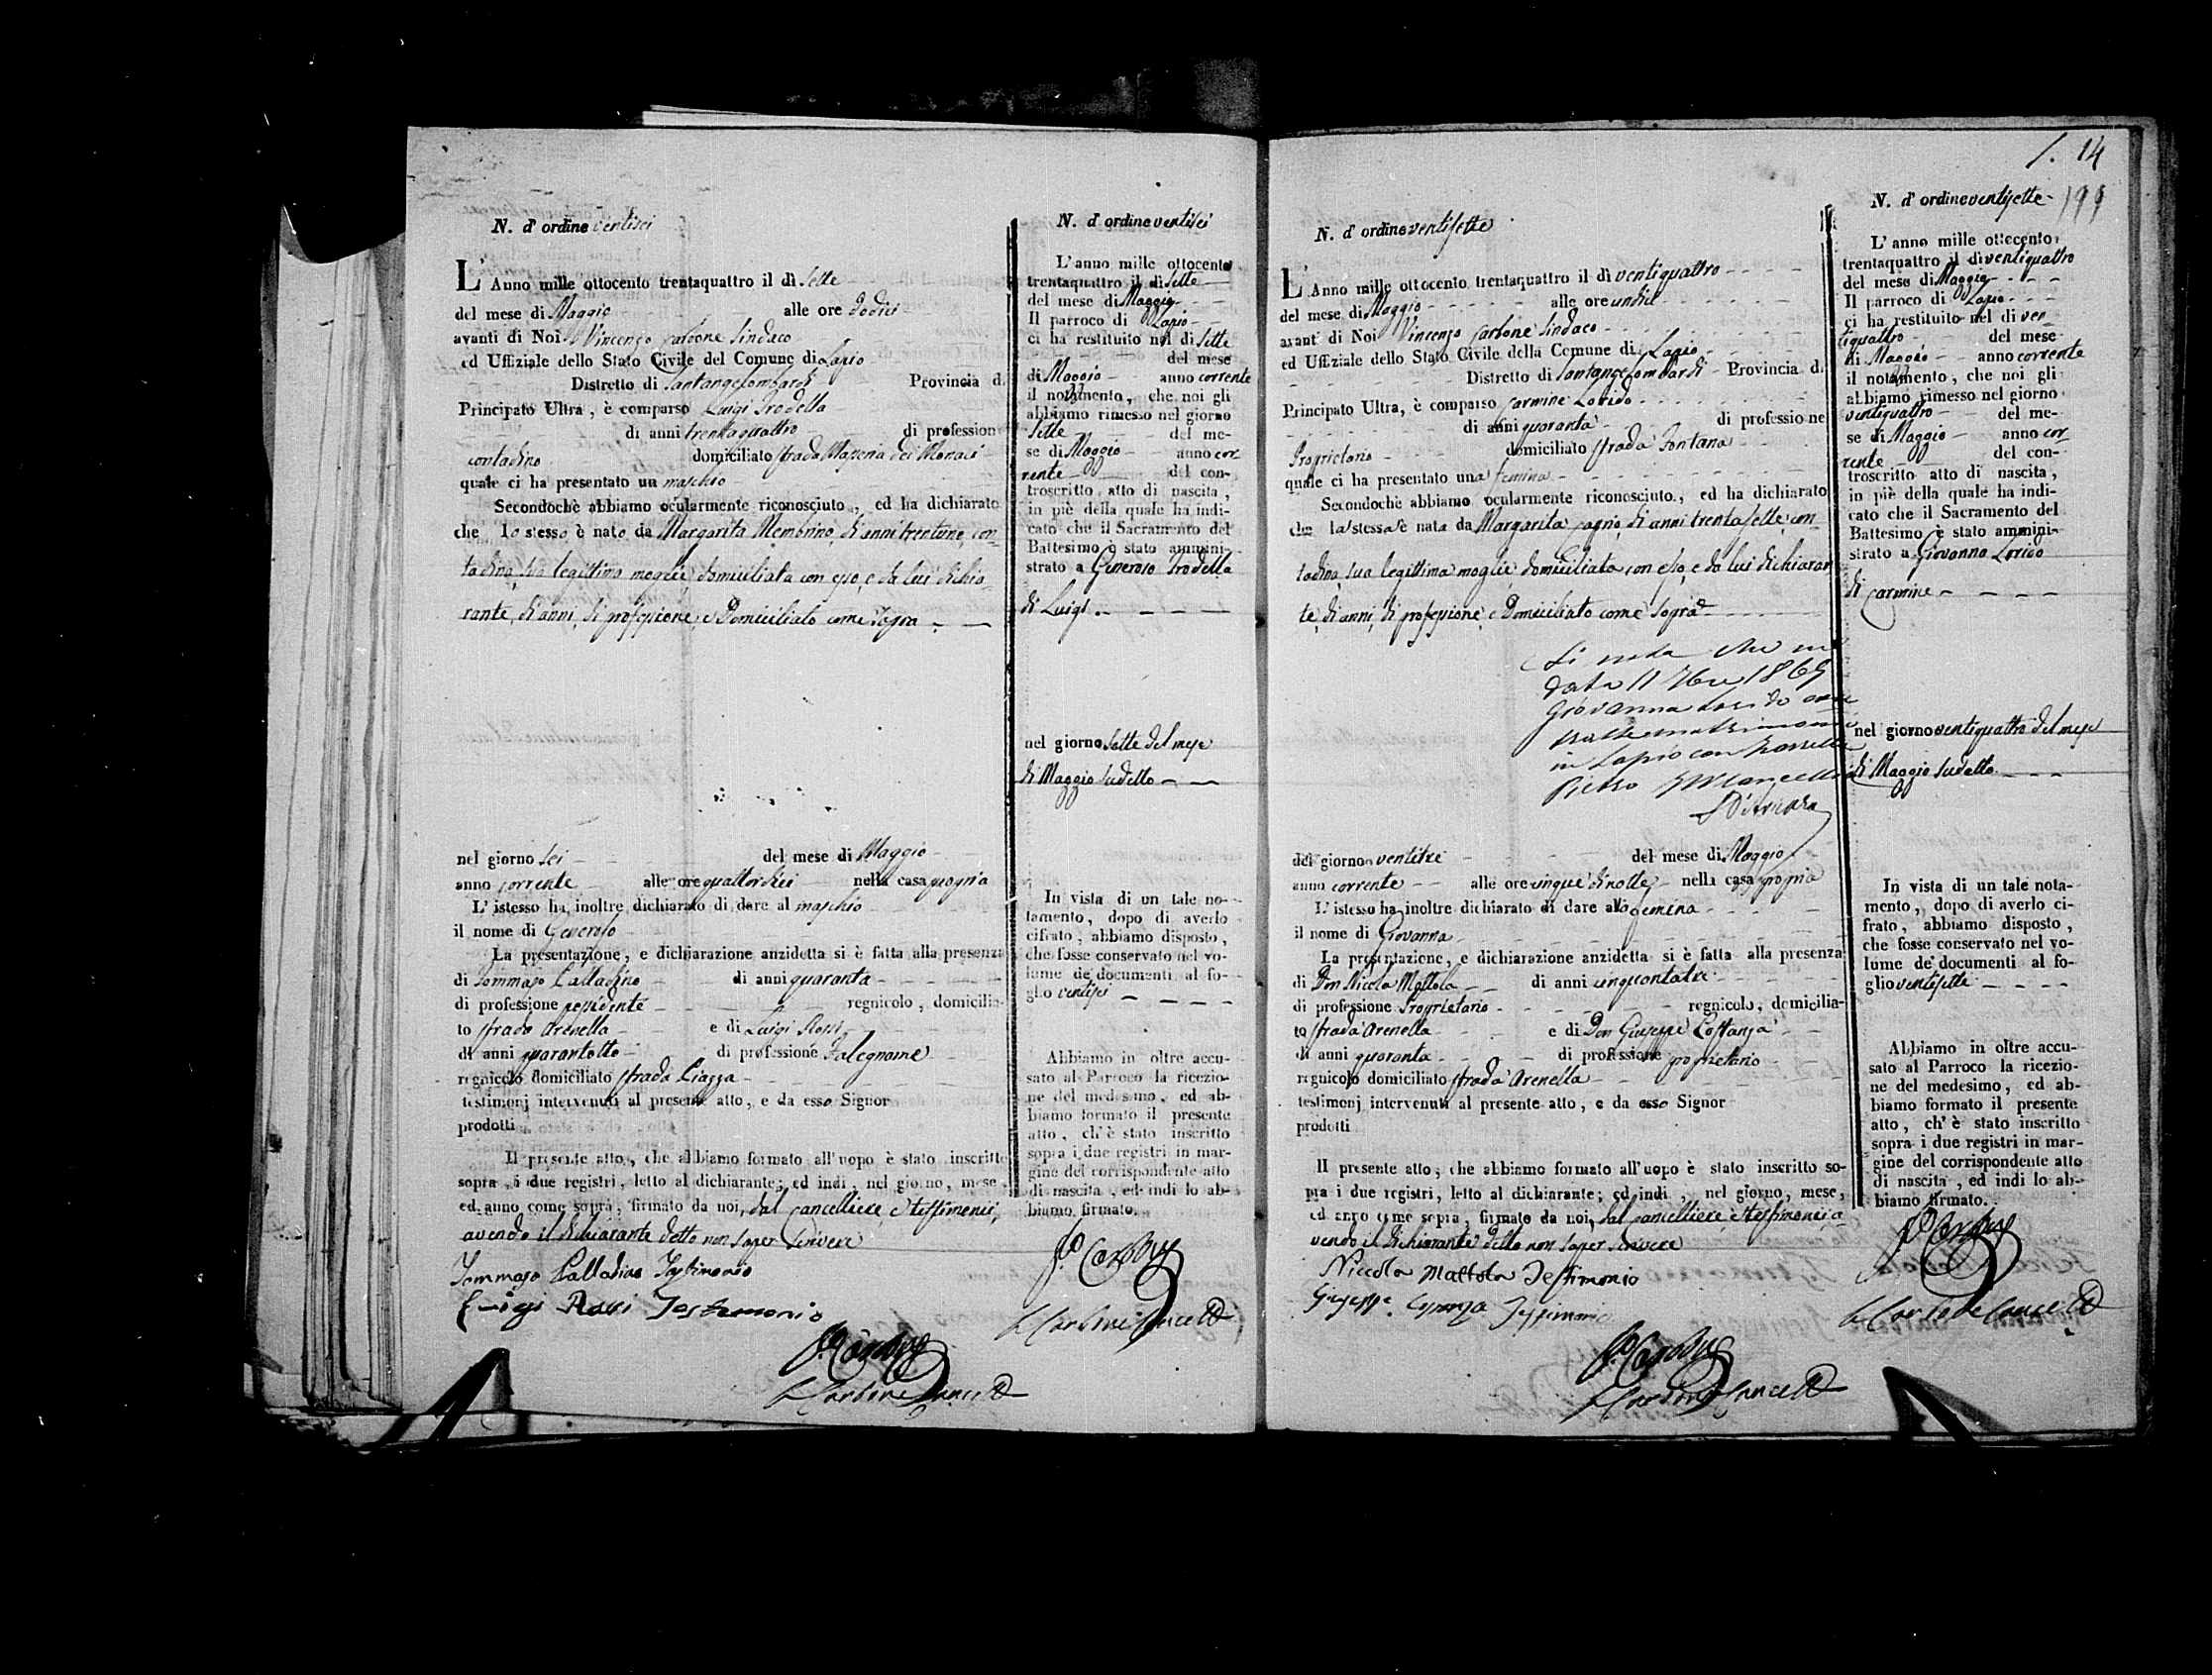 N. d'ordine ventisei
L'Anno mille ottocento trentaquattro il dì sette
del mese di Maggio alle ore dodici
avanti di Noi Vincenzo Carbone Sindaco
ed Uffiziale dello Stato Civile del Comune di Lapio
Distretto di Santangelombardi Provincia di
Principato Ultra, è comparso Luigi Trodella
di anni trentaquattro di professione
contadino domiciliato strada Maseria dei Monaci
quale ci ha presentato un maschio
Secondochè abbiamo ocularmente riconosciuto, ed ha dichiarato
che lo stesso è nato da Margarita Membrino, di anni trentuno, con-
tadina, sua legittima moglie, domiciliata con esso, e da lui dichia-
rante, di anni, di professione, e Domiciliato come sopra
nel giorno sei del mese di Maggio
anno corrente alle ore quattordici nella casa propria
L'istesso ha inoltre dichiarato di dare al maschio
il nome di Generoso
La presentazione, e dichiarazione anzidetta si è fatta alla presenza
di Tommaso Palladino di anni quaranta
di professione possidente regnicolo, domicilia-
to strada Arenella e di Luigi Rossi
di anni quarantotto di professione Falegname
regnicolo domiciliato strada Piazza
testimonj intervenuti al presente atto, e da esso Signor
prodotti
Il presente atto, che abbiamo formato all'uopo è stato inscritto
sopra i due registri, letto al dichiarante; ed indi, nel giorno, mese,
ed anno come sopra, firmato da noi, dal Cancelliere, e testimonii,
avendo il dichiarante detto non saper scrivere
Tommaso Palladino Testimonio
Luigi Rossi Testimonio
Carbone
Carbone Cancell
N. d'ordine ventisei
L'anno mille ottocento
trentaquattro il di sette
del mese di Maggio
Il parroco di Lapio
ci ha restituito nel di sette
del mese
di Maggio anno corrente
il notamento, che noi gli
abbiamo rimesso nel giorno
sette del me-
se di Maggio anno cor-
rente del con-
troscritto atto di nascita,
in piè della quale ha indi-
cato che il Sacramento del
Battesimo è stato ammini-
strato a Generoso Trodella
di Luigi
nel giorno sette del mese
di Maggio sudetto
In vista di un tale no-
tamento, dopo di averlo
cifrato, abbiamo disposto,
che fosse conservato nel vo-
lume de' documenti al fo-
glio ventisei
Abbiamo in oltre accu-
sato al Parroco la ricezio-
ne del medesimo, ed ab-
biamo formato il presente
atto, ch'è stato inscritto
sopra i due registri in mar-
gine del corrispondente atto
di nascita, ed indi lo ab-
biamo firmato.
Carbone
Carbone Cancell
14
199
N. d'ordine ventisette
L'Anno mille ottocento trentaquattro il dì ventiquattro
del mese di Maggio alle ore undici
avanti di Noi Vincenzo Carbone Sindaco
ed Uffiziale dello Stato Civile della Comune di Lapio
Distretto di Santangelombardi Provincia di
Principato Ultra, è comparso Carmine Lorido
di anni quaranta di professione
Proprietario domiciliato strada Fontana
quale ci ha presentato una femina
Secondochè abbiamo ocularmente riconosciuto, ed ha dichiarato
che la stessa è nata da Margarita Cagno, di anni trentasette, con-
tadina, sua legittima moglie domiciliata con esso, e da lui dichiaran-
te, di anni, di professione, e Domiciliato come sopra
Si nota che in
data 11 7bre 1865
Giovanna Lorido con-
trasse matrimonio
in Lapio con
Pietro
D'Amora
del giorno ventitre del mese di Maggio
anno corrente alle ore cinque di notte nella casa propria
L'istesso ha inoltre dichiarato di dare alla femina
il nome di Giovanna
La presentazione, e dichiarazione anzidetta si è fatta alla presenza
di Don Nicola Mottola di anni cinquantatre
di professione Proprietario regnicolo, domicilia-
to strada Arenella e di Don Giuseppe Costanza
di anni quaranta di professione proprietario
regnicolo domiciliato strada Arenella
testimonj intervenuti al presente atto, e da esso Signor
prodotti
Il presente atto, che abbiamo formato all'uopo è stato inscritto so-
pra i due registri, letto al dichiarante; ed indi, nel giorno, mese,
ed anno come sopra, firmato da noi, dal Cancelliere e testimonii, a-
vendo il dichiarante detto non saper scrivere
Niccola Mottola Testimonio
Giuseppe Testimonio
Carbone
Carbone Cancell
N. d'ordine ventisette
L'anno mille ottocento
trentaquattro il di ventiquattro
del mese di Maggio
Il parroco di Lapio
ci ha restituito nel di ven-
tiquattro del mese
di Maggio anno corrente
il notamento, che noi gli
abbiamo rimesso nel giorno
ventiquattro del me-
se di Maggio anno cor-
rente del con-
troscritto atto di nascita,
in piè della quale ha indi-
cato che il Sacramento del
Battesimo è stato ammini-
strato a Giovanna Lorido
di Carmine
nel giorno ventiquattro del mese
di Maggio sudetto
In vista di un tale nota-
mento, dopo di averlo ci-
frato, abbiamo disposto,
che fosse conservato nel vo-
lume de' documenti al fo-
glio ventisette
Abbiamo in oltre accu-
sato al Parroco la ricezio-
ne del medesimo, ed ab-
biamo formato il presente
atto, ch'è stato inscritto
sopra i due registri in mar-
gine del corrispondente atto
di nascita, ed indi lo ab-
biamo firmato.
Carbone
Carbone Cancell